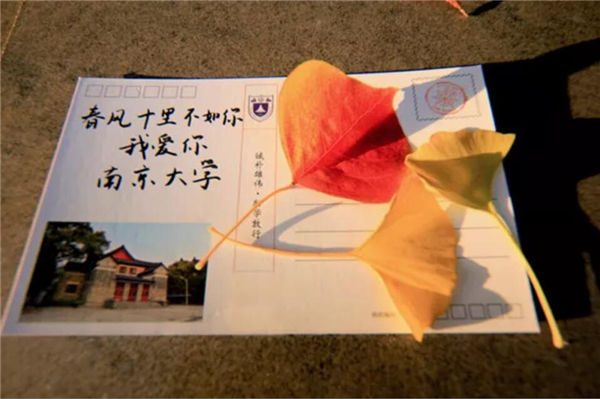 春风十里不如你
我爱你
南京大学
诚朴雄伟·励学敦行